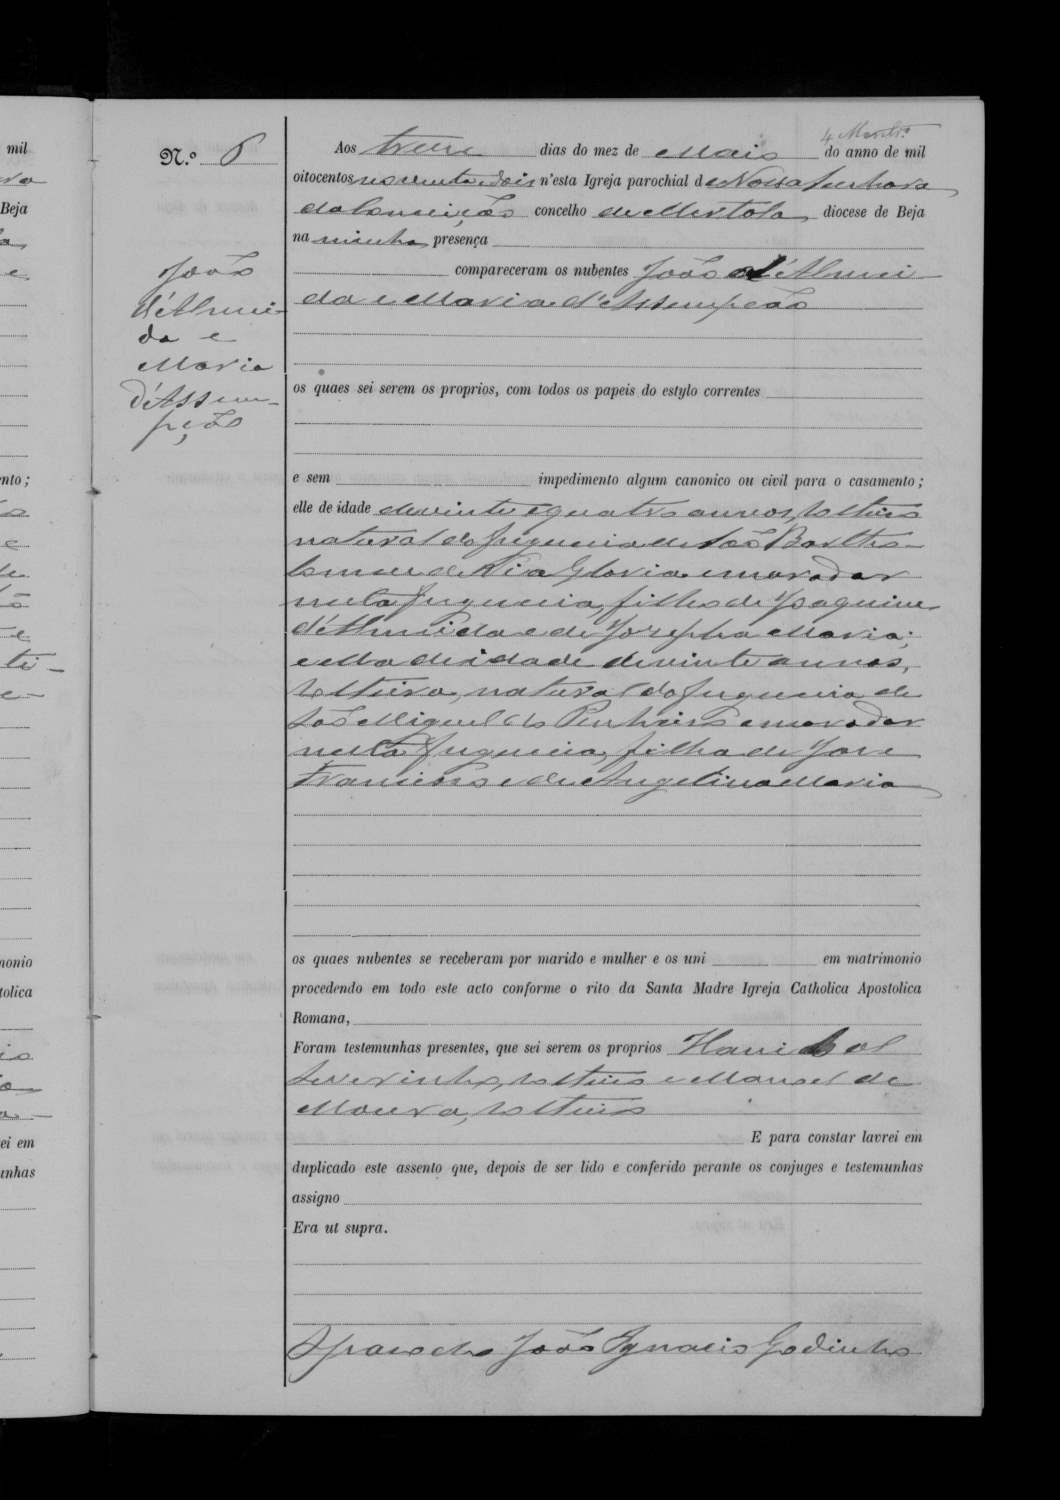 N.º 6
João
d'Almei-
da e
Maria
d'Assum-
pção
Aos treze dias do mez de Maio do anno de mil
oitocentos noventa e dois n'esta Igreja parochial de Nossa Senhora
da Conceição concelho de Mertola diocese de Beja
na minha presença
compareceram os nubentes João d'Almei-
da e Maria d'Assumpção
os quaes sei serem os proprios, com todos os papeis do estylo correntes
e sem impedimento algum canonico ou civil para o casamento;
elle de idade de vinte e quatro annos, solteiro
natural da freguezia de São Bartho-
lomeu de Via Gloria e morador
nesta freguezia, filho de Joaquim
d'Almeida e de Josepha Maria;
e ella de idade de vinte annos,
solteira, natural da freguezia de
São Miguel do Pinheiro e morador
nesta freguezia, filha de Jose
Francisco e de Angelina Maria
os quaes nubentes se receberam por marido e mulher e os uni em matrimonio
procedendo em todo este acto conforme o rito da Santa Madre Igreja Catholica Apostolica
Romana,
Foram testemunhas presentes, que sei serem os proprios Hanibal
Severinho, solteiro e Manoel de
Moura, solteiro
E para constar lavrei em
duplicado este assento que, depois de ser lido e conferido perante os conjuges e testemunhas
assigno
Era ut supra.
O Parocho João Ignacio Godinho